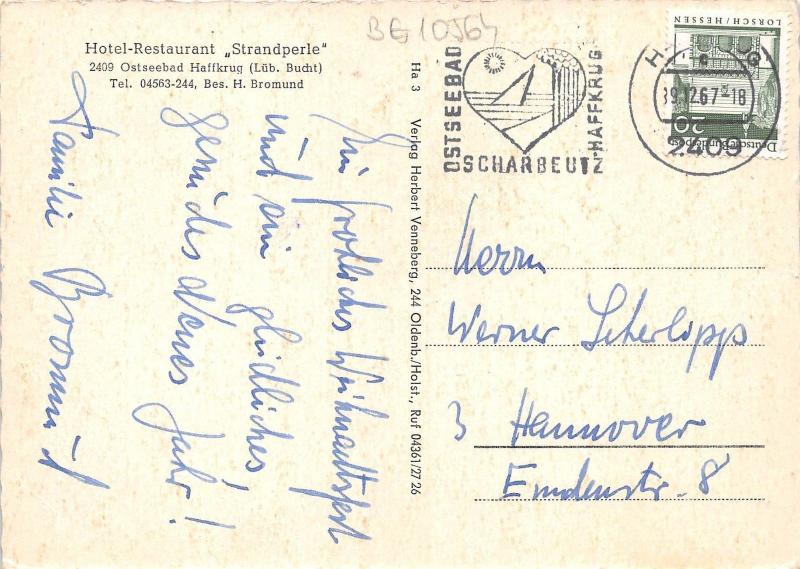 BG 10564
Hotel-Restaurant „Strandperle"
2409 Ostseebad Haffkrug (Lüb. Bucht)
Tel. 04563-244, Bes. H. Bromund
Ein fröhliches Weihnachtsfest
und ein glückliches
gesundes Neues Jahr!
Familie Bromund
Ha 3 Verlag Herbert Venneberg, 244 Oldenb./Holst., Ruf 04361/2726
OSTSEEBAD
SCHARBEUTZ
-HAFFKRUG
LORSCH/HESSEN
20
Deutsche Bundespost
c
12.67-18
2409
Herrn
Werner Scherlopp
3 Hannover
Emdenstr. 8